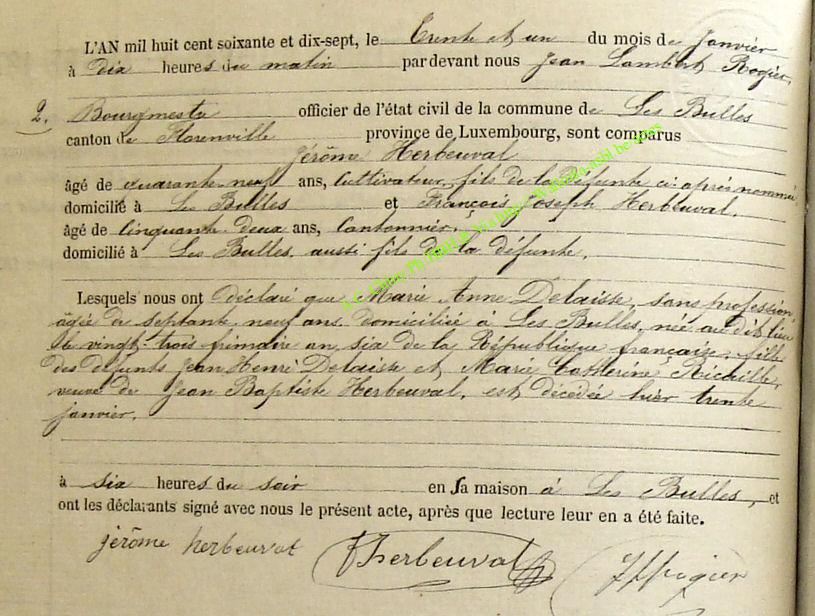 L'AN mil huit cent soixante et dix-sept, le Trente et un du mois de Janvier
à dix heures du matin pardevant nous Jean Lambert Rogier,
2. Bourgmestre officier de l'état civil de la commune de Les Bulles
canton de Florenville province de Luxembourg, sont comparus
Jérôme Herbeuval
âgé de quarante-neuf ans, Cultivateur, fils de la Défunte ci après nommée
domicilié à Les Bulles et François Joseph Herbeuval,
âgé de Cinquante-deux ans, Cantonnier,
domicilié à Les Bulles, aussi fils de la défunte.
Lesquels nous ont déclaré que Marie Anne Delaiste, sans profession,
âgée de septante-neuf ans, domiciliée à Les Bulles, née au dit lieu
le vingt-trois frimaire an six de la République française, fille
des défunts Jean Henri Delaiste et Marie Catherine Ricaille,
veuve de Jean Baptiste Herbeuval, est décédée hier trente
janvier,
à six heures du soir en sa maison à Les Bulles, et
ont les déclarants signé avec nous le présent acte, après que lecture leur en a été faite.
jérôme herbeuval Fherbeuval JLRogier